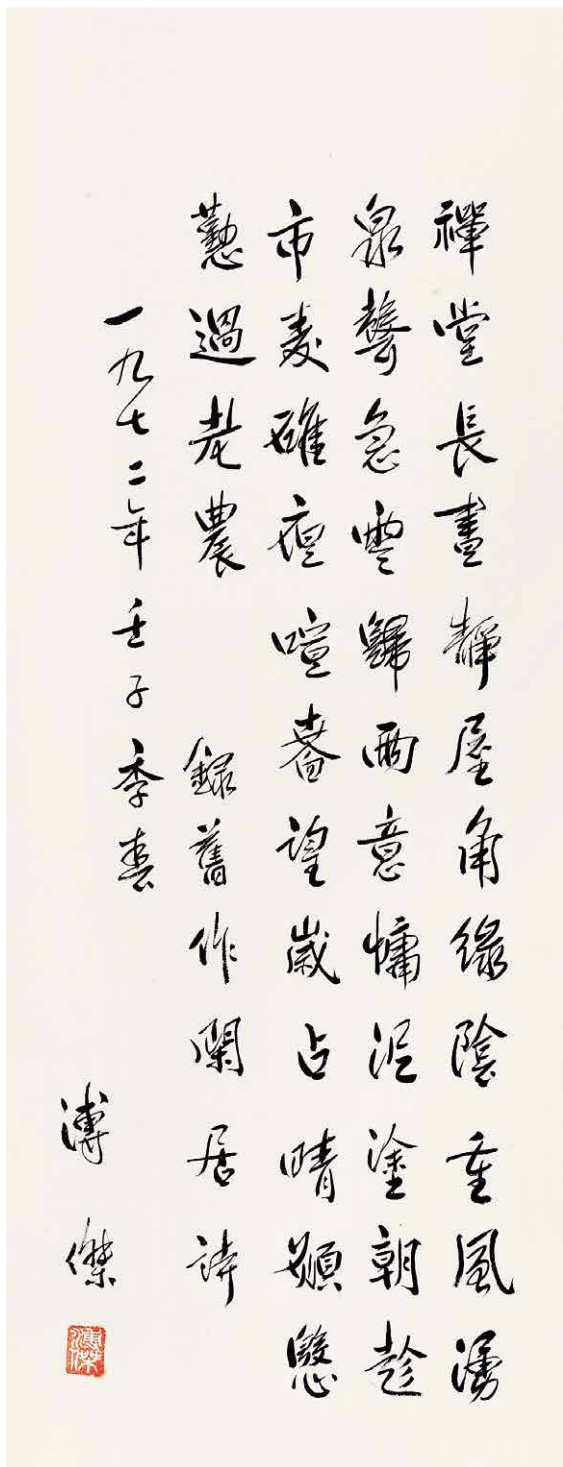 禪堂長晝靜屋角綠陰重風湧
泉聲急雲歸雨意慵泥塗朝趁
市麥碓喧舂望歲占晴願慇
懃過老農 錄舊作閑居詩
一九七二年壬子季春
溥傑
溥傑